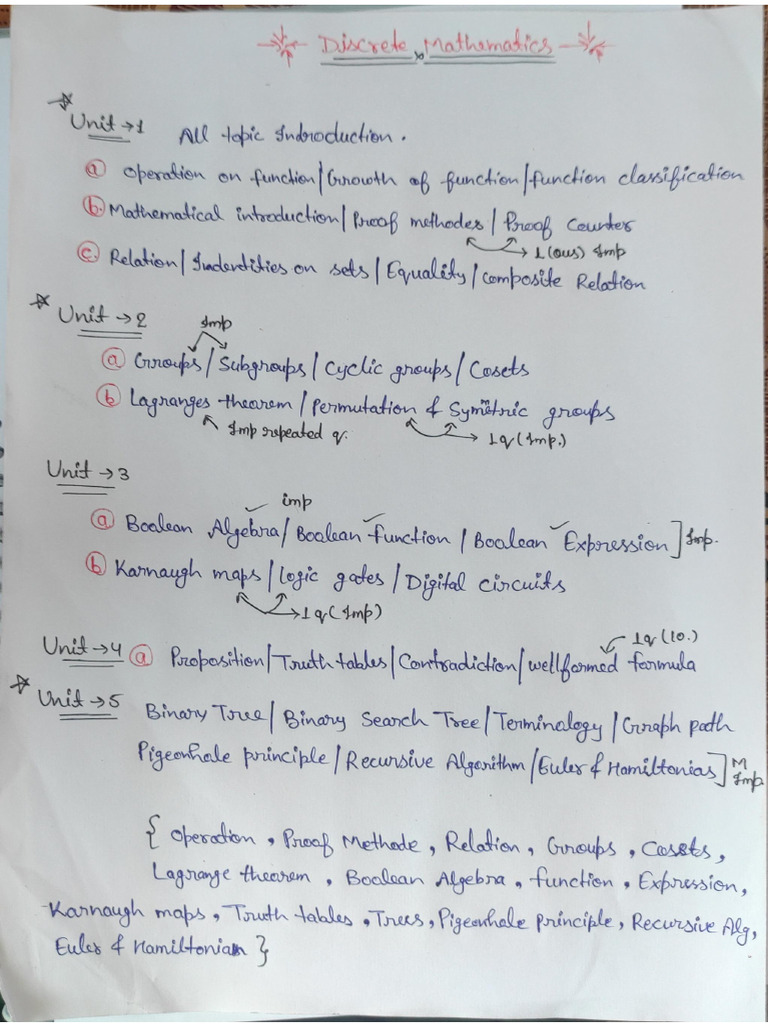 Discrete Mathematics
Unit → 1 All topic Introduction.
a Operation on function / Growth of function / function classification
b. Mathematical introduction / Proof methodes / Proof Counter
→ 1 (Ques) Imp
c. Relation / Indentities on sets / Equality / Composite Relation
Unit → 2
Imp
a Groups / Subgroups / Cyclic groups / Cosets
b Lagranges theorem / Permutation & Symetric groups
Imp repeated q. → 1q (Imp.)
Unit → 3
imp
a Boolean Algebra / Boolean function / Boolean Expression ] Imp.
b Karnaugh maps / logic gates / Digital circuits
→ 1q (Imp)
1q (10.)
Unit → 4 a Proposition / Truth tables / Contradiction / wellformed formula
Unit → 5 Binary Tree / Binary Search Tree / Terminology / Graph path
Pigeonhale principle / Recursive Algorithm / Euler & Hamiltonias ] M Imp
{ Operation, Proof Methode, Relation, Groups, Cosets,
Lagrange theorem, Boolean Algebra, function, Expression,
Karnaugh maps, Truth tables, Trees, Pigeonhale principle, Recursive Alg,
Euler & Hamiltonian }